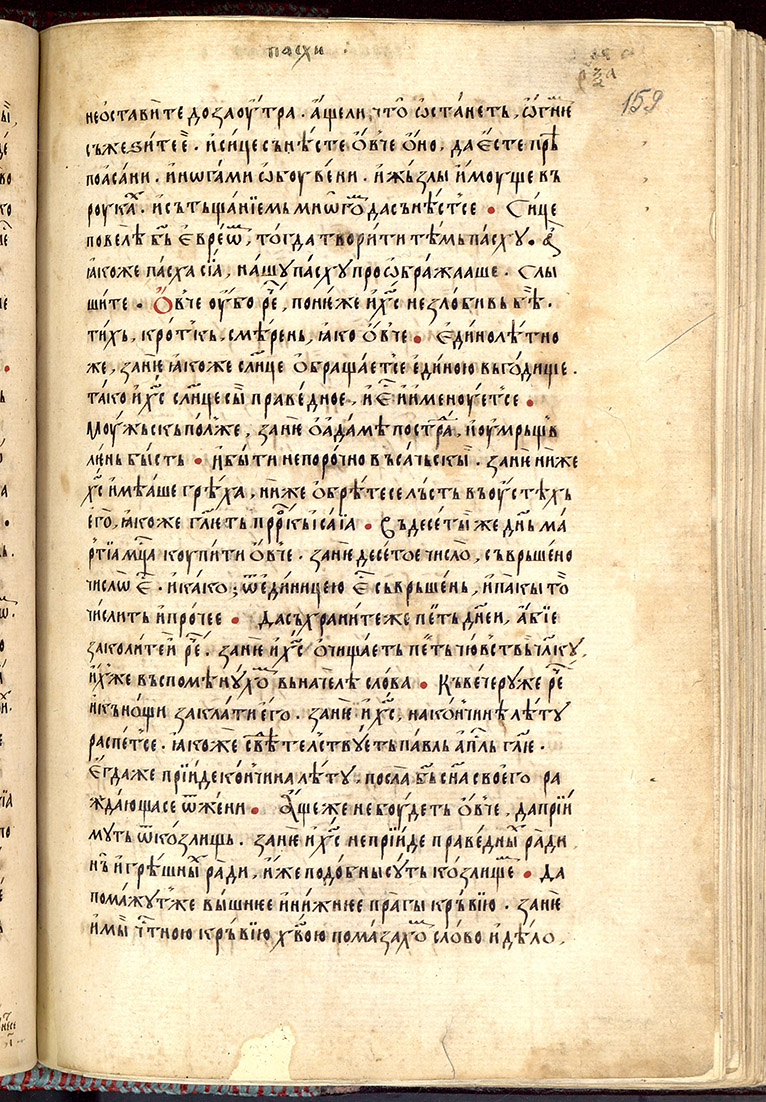 пасхи
159
неѡставите до заоутра · аще ли, что ѡстанеть, ѡгнѥ
съжезите е҆ · и сице сънѣсте ѻвче ѻно, да есте прѣ
поасани · и ногами ѡбоувени · и жьзлы имоуще въ
роукаⷯ · и съ тьщаніемь мнѡгѡⷨ да сънѣстсе · Сице
повелѣ бь҃ євреѡⷨ, тогда творити тѣмь пасху ·
ꙗкоже пасха сіа, нашу пасху проѡбражааше · Слы
шите · Ѻвче оубо реⷱ, понѥже и х҃с незлобивь бѣ ·
тихь, кротⸯкь, смѣрень, ꙗко ѻвче · Єдинолѣтно
же, занѥ ꙗкоже слн҃це ѻбращаетсе єдиною вь годище ·
тако и х҃с слн҃це сы праведное, и єⷭ и именоуетсе ·
Моужьскь пол же, занѥ ѻ адамѣ постраⷣ, и оумрьщв
лень бысть · и быти непорочно въсачьскы · занѥ ниже
х҃с имѣаше грѣха, ниже ѻбрѣтесе льсть въ оустѣхь
єго, ꙗкоже гл҃еть прⷪ҇ркь ісаіа · Въ десеты же дн҃ь ма
ртіа мцⷭ҇а коупити ѻвче · занѥ десетое число, съврьшено
числѡ єⷭ · и како; ѿ єдиницею єⷭ съврьшень, и пакы то
числить и прочее · Да съхраните же петь дн҃еи, абіе
заколите и реⷱ · занѥ и х҃с ѻчищаеть петь чювствь чл҃ку,
ихже въспомѣнухѡⷨ вь начелѣ слова · Къ вечеру же реⷱ
и къ нощи заклати его · занѥ и х҃с, на кончинѣ лѣту
распетсе · ꙗкоже свѣⷣтелствуеть павль апⷭ҇ль гл҃ѥ ·
Єгда же пріиде кончина лѣту, посла бь҃ сн҃а своего ра
ждающасе ѿ жени · Аще же не боудеть ѻвче, да пріи
муть ѿ козлищь · занѥ и х҃с не пріиде праведныⷯ ради
нь и грѣшныⷯ ради, иже подобны суть козлищеⷨ · Да
помажут же вышнее и нижнее прагы крьвію · занѥ
и мы чⷭ҇тною крьвію хв҃ою помазахѡⷨ слово и дѣло,